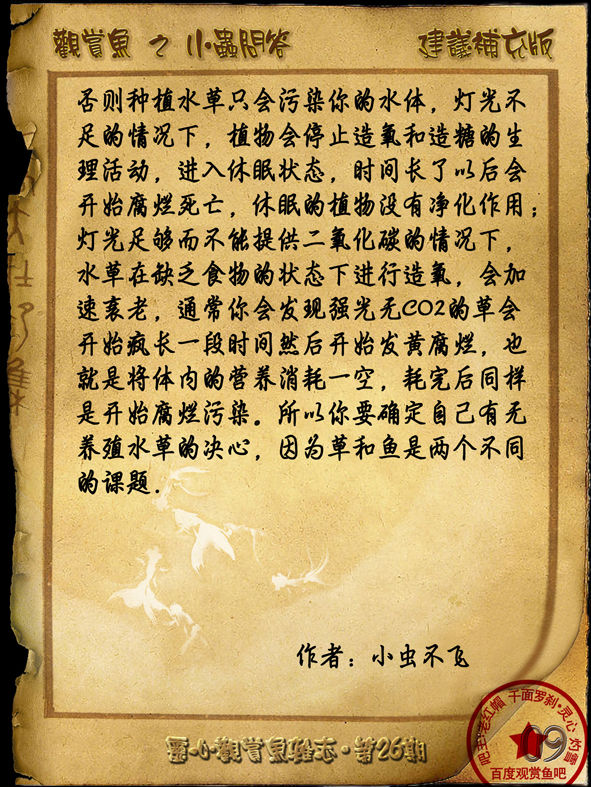 觀賞魚 之 小蟲問答 建議補充版
否则种植水草只会污染你的水体，灯光不
足的情况下，植物会停止造氧和造糖的生
理活动，进入休眠状态，时间长了以后会
开始腐烂死亡，休眠的植物没有净化作用；
灯光足够而不能提供二氧化碳的情况下，
水草在缺乏食物的状态下进行造氧，会加
速衰老，通常你会发现强光无CO2的草会
开始疯长一段时间然后开始发黄腐烂，也
就是将体内的营养消耗一空，耗完后同样
是开始腐烂污染。所以你要确定自己有无
养殖水草的决心，因为草和鱼是两个不同
的课题．
作者：小虫不飞
觀賞魚雜志·第26期
吧主：老红帽 千面罗刹·灵心
09
百度观赏鱼吧